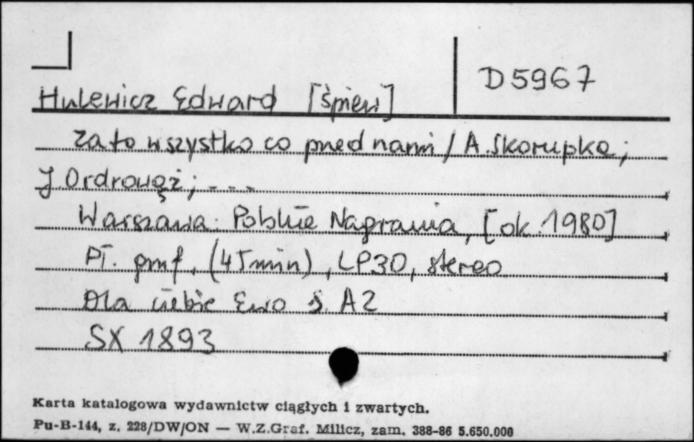 D5967
Hulewicz Edward [śpiew]
Za to wszystko co przed nami / A. Skorupka;
J Ordrowąż; ...
Warszawa: Polskie Nagrania, [ok. 1980]
Pł. gmf. (45 min), LP30, stereo
Dla ciebie Ewo s. A2
SX 1893
Karta katalogowa wydawnictw ciągłych i zwartych.
Pu-B-144, z. 228/DW/ON — W.Z.Graf. Milicz, zam. 388-86 5.650.000